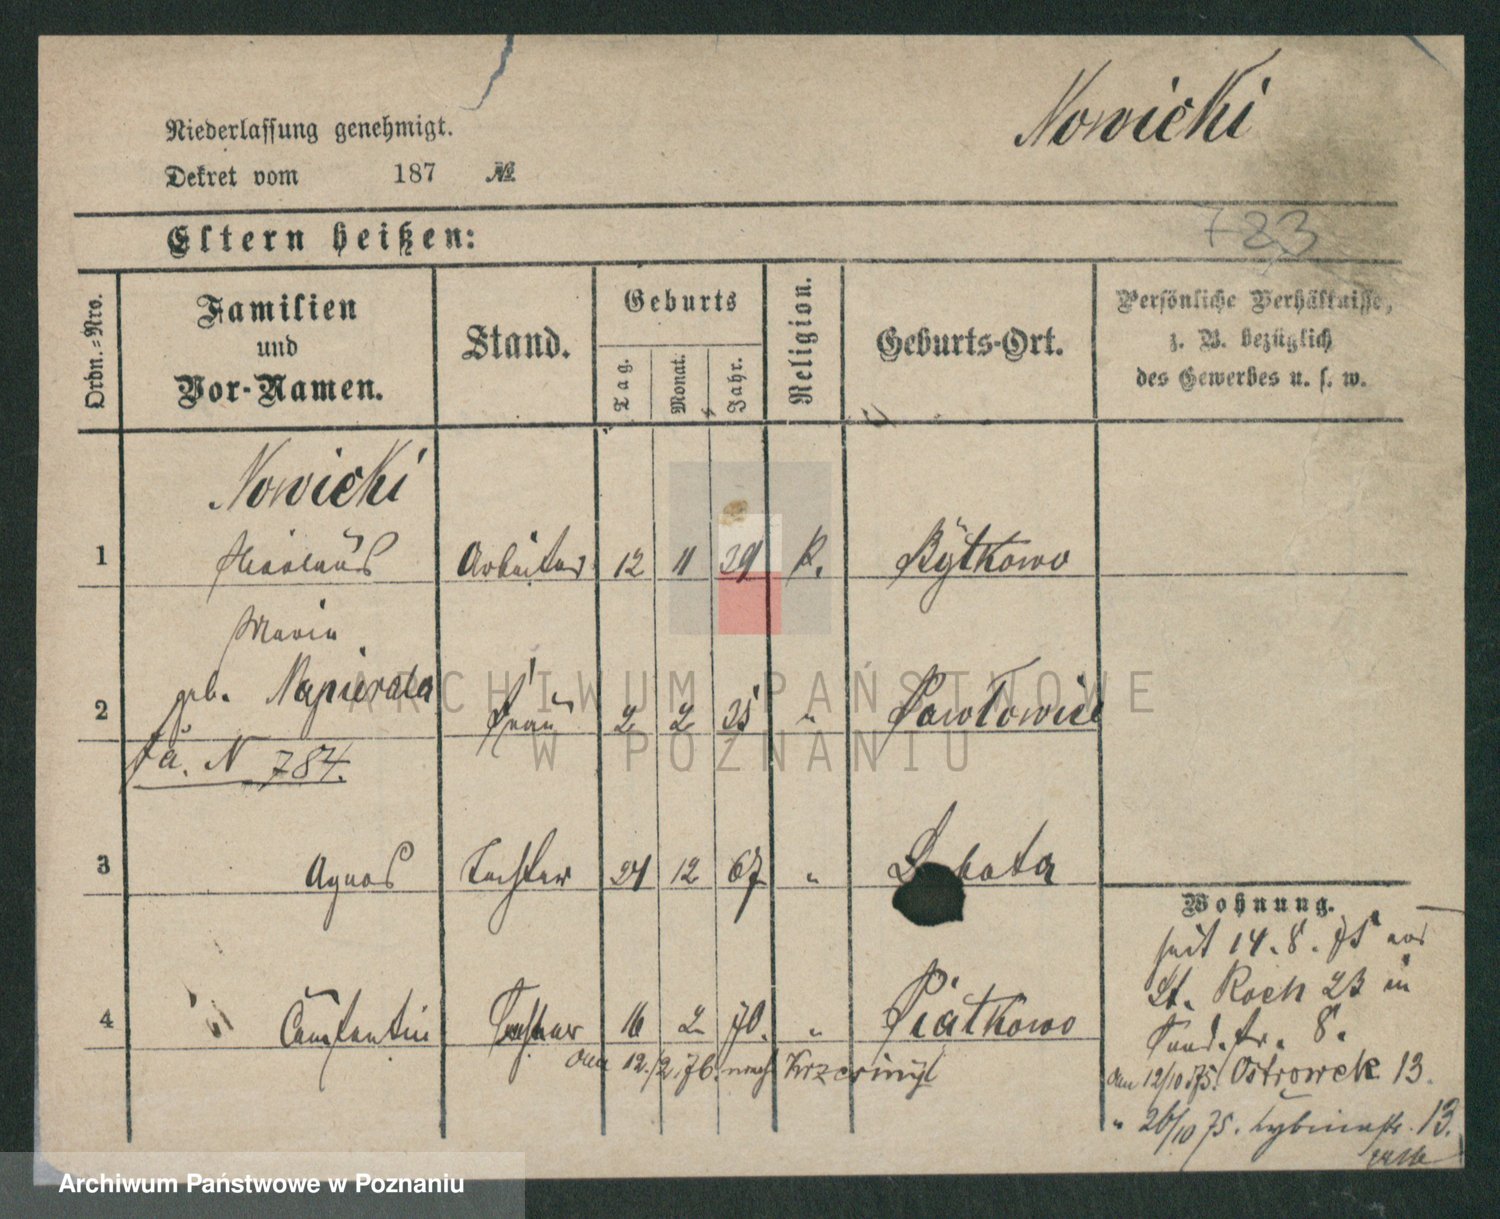 Nowicki
Niederlassung genehmigt.
Dekret vom 187 №
723
Eltern heißen:
Ordn.-Nro.
Familien und Vor-Namen.
Stand.
Geburts
Tag.
Monat.
Jahr.
Religion.
Geburts-Ort.
Persönliche Verhältnisse,
z. B. bezüglich
des Gewerbes u. s. w.
Nowicki
1 Nicolaus Arbeiter 12 11 39 K. Bytkowo
Maria
2 geb. Napierala Frau 2 2 35 " Pawłowice
N 784.
3 Agnes Tochter 24 12 67 "
4 Constantin Tochter 16 2 70. " Piątkowo
am 12./2.76. nach
Wohnung.
seit 14. 8. 75
St. Roch 23 in
8.
am 12/10 75. Ostrowek 13.
" 26/10 75. 13.
ARCHIWUM PAŃSTWOWE
W POZNANIU
Archiwum Państwowe w Poznaniu